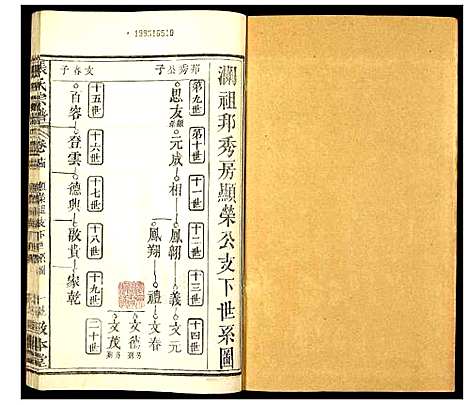 199516510
瀾祖邦秀房顯榮公支下世系圖
邦秀公子
第九世
第十世
十一世
十二世
十三世
十四世
思友
元成
相
鳳朝
義
文元
鳳翔
禮
文春
文德
文茂
文春子
十五世
十六世
十七世
十八世
十九世
二十世
百容
登雲
德興
啟貴
家乾
氏宗譜
敦本堂